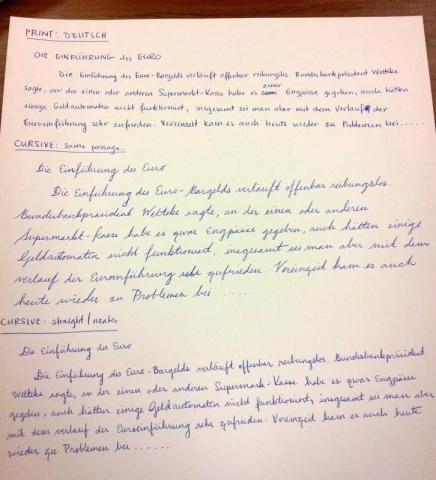 PRINT: DEUTSCH
DIE EINFÜHRUNG des EURO
Die Einführung des Euro-Bargelds verläuft offenbar reibungslos. Bundesbankpräsident Welteke
sagte, an der einen oder anderen Supermarkt-Kasse habe es zwar Engpässe gegeben, auch hätten
einige Geldautomaten nicht funktioniert, insgesamt sei man aber mit dem Verlauf der
Euroeinführung sehr zufrieden. Vereinzelt kam es auch heute wieder zu Problemen bei.....
CURSIVE: same passage.
Die Einführung des Euro
Die Einführung des Euro-Bargelds verläuft offenbar reibungslos.
Bundesbankpräsident Welteke sagte, an der einen oder anderen
Supermarkt-Kasse habe es zwar Engpässe gegeben, auch hätten einige
Geldautomaten nicht funktioniert, insgesamt sei man aber mit dem
verlauf der Euroeinführung sehr zufrieden. Vereinzelt kam es auch
heute wieder zu Problemen bei.....
CURSIVE: straight/neater
Die Einführung des Euro
Die Einführung des Euro-Bargelds verläuft offenbar reibungslos. Bundesbankpräsident
Welteke sagte, an der einen oder anderen Supermark-Kasse habe es zwar Engpässe
gegeben, auch hätten einige Geldautomaten nicht funktioniert, insgesamt sei man aber
mit dem verlauf der Euroeinführung sehr zufrieden. Vereinzelt kam es auch heute
wieder zu Problemen bei......